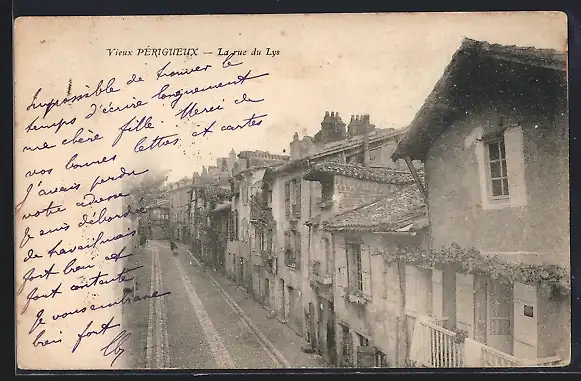 Vieux PÉRIGUEUX — La rue du Lys
Impossible de trouver le
temps d'écrire longuement
ma chère fille. Merci de
vos bonnes lettres et cartes
J'avais perdu
votre adresse
Je suis débordé
de travail mais
fort bien et
fort content
Je vous embrasse
bien fort